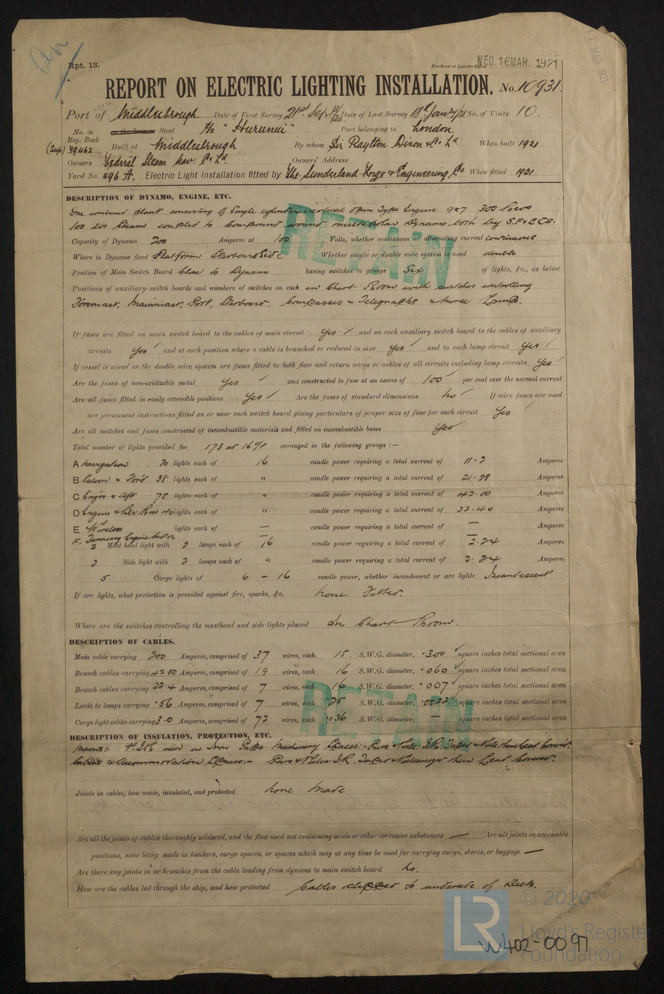 Rpt. 13.
WED. 16 MAR. 1921
REPORT ON ELECTRIC LIGHTING INSTALLATION. No. 10931.
Port of Middlesbrough Date of First Survey 21st Sep. Date of Last Survey No. of Visits 10.
No. in Reg. Book 39462 Steel "Hurunui" Port belonging to London.
Built at Middlesbrough By whom Sir Raylton Dixon & Co. Ld When built 1921
Owners Federal Steam Nav. Co. Ld Owners' Address
Yard No. 596 A. Electric Light Installation fitted by The Sunderland Forge & Engineering Co When fitted 1921
DESCRIPTION OF DYNAMO, ENGINE, ETC.
One combined plant consisting of Single cylinder enclosed open type Engine 9 x 7 300 Revs
100 lbs Steam coupled to Compound wound multipolar Dynamo both by S.F. & E Co.
Capacity of Dynamo 200 Amperes at 100 Volts, whether continuous or alternating current continuous
Where is Dynamo fixed Platform Starboard Side Whether single or double wire system is used double
Position of Main Switch Board Close to Dynamo having switches to groups Six of lights, &c., as below
Positions of auxiliary switch boards and numbers of switches on each in Chart Room with switches controlling
Foremast, Mainmast, Port, Starboard, Compasses & Telegraphs & Morse Lamp.
If fuses are fitted on main switch board to the cables of main circuit Yes and on each auxiliary switch board to the cables of auxiliary
circuits Yes and at each position where a cable is branched or reduced in size Yes and to each lamp circuit Yes
If vessel is wired on the double wire system are fuses fitted to both flow and return wires or cables of all circuits including lamp circuits Yes
Are the fuses of non-oxidizable metal Yes and constructed to fuse at an excess of 100 per cent over the normal current
Are all fuses fitted in easily accessible positions Yes Are the fuses of standard dimensions No If wire fuses are used
are permanent instructions fitted on or near each switch board giving particulars of proper size of fuse for each circuit Yes
Are all switches and fuses constructed of incombustible materials and fitted on incombustible bases Yes
Total number of lights provided for 173 at 16 cp arranged in the following groups :—
A Navigation 20 lights each of 16 candle power requiring a total current of 11.2 Amperes
B Saloon & Ford 38 lights each of " candle power requiring a total current of 21.28 Amperes
C Engrs & Aft 75 lights each of " candle power requiring a total current of 42.00 Amperes
D Engine & Blr Rms 40 lights each of " candle power requiring a total current of 22.40 Amperes
E Wireless lights each of — candle power requiring a total current of — Amperes
F. Turning Engine
2 Mast head light with 2 lamps each of 16 candle power requiring a total current of 2.24 Amperes
2 Side light with 2 lamps each of " candle power requiring a total current of 2.24 Amperes
5 Cargo lights of 6 – 16 candle power, whether incandescent or arc lights Incandescent
If arc lights, what protection is provided against fire, sparks, &c. None Fitted.
Where are the switches controlling the masthead and side lights placed In Chart Room.
DESCRIPTION OF CABLES.
Main cable carrying 200 Amperes, comprised of 37 wires, each 15 S.W.G. diameter, .300 square inches total sectional area
Branch cables carrying 42.00 Amperes, comprised of 19 wires, each 16 S.W.G. diameter, .060 square inches total sectional area
Branch cables carrying 22.4 Amperes, comprised of 7 wires, each 16 S.W.G. diameter, .007 square inches total sectional area
Leads to lamps carrying .56 Amperes, comprised of 7 wires, each 25 S.W.G. diameter, .0022 square inches total sectional area
Cargo light cables carrying 3.0 Amperes, comprised of 72 wires, each .036 S.W.G. diameter, — square inches total sectional area
DESCRIPTION OF INSULATION, PROTECTION, ETC.
Mains:- V.I.R. run in Iron Tubes. Machinery Spaces:- Pure & Vulc. I.R. Taped &
Cabins & Accommodation Spaces:- Pure & Vulc. I.R. Taped & then Lead Covered.
Joints in cables, how made, insulated, and protected None made
Are all the joints of cables thoroughly soldered, and the flux used not containing acids or other corrosive substances — Are all joints in accessible
positions, none being made in bunkers, cargo spaces, or spaces which may at any time be used for carrying cargo, stores, or baggage —
Are there any joints in or branches from the cable leading from dynamo to main switch board No.
How are the cables led through the ship, and how protected Cables clipped to underside of Deck.
RETAIN
RETAIN
LR
© 2020
Lloyd's Register
Foundation
W402-0097